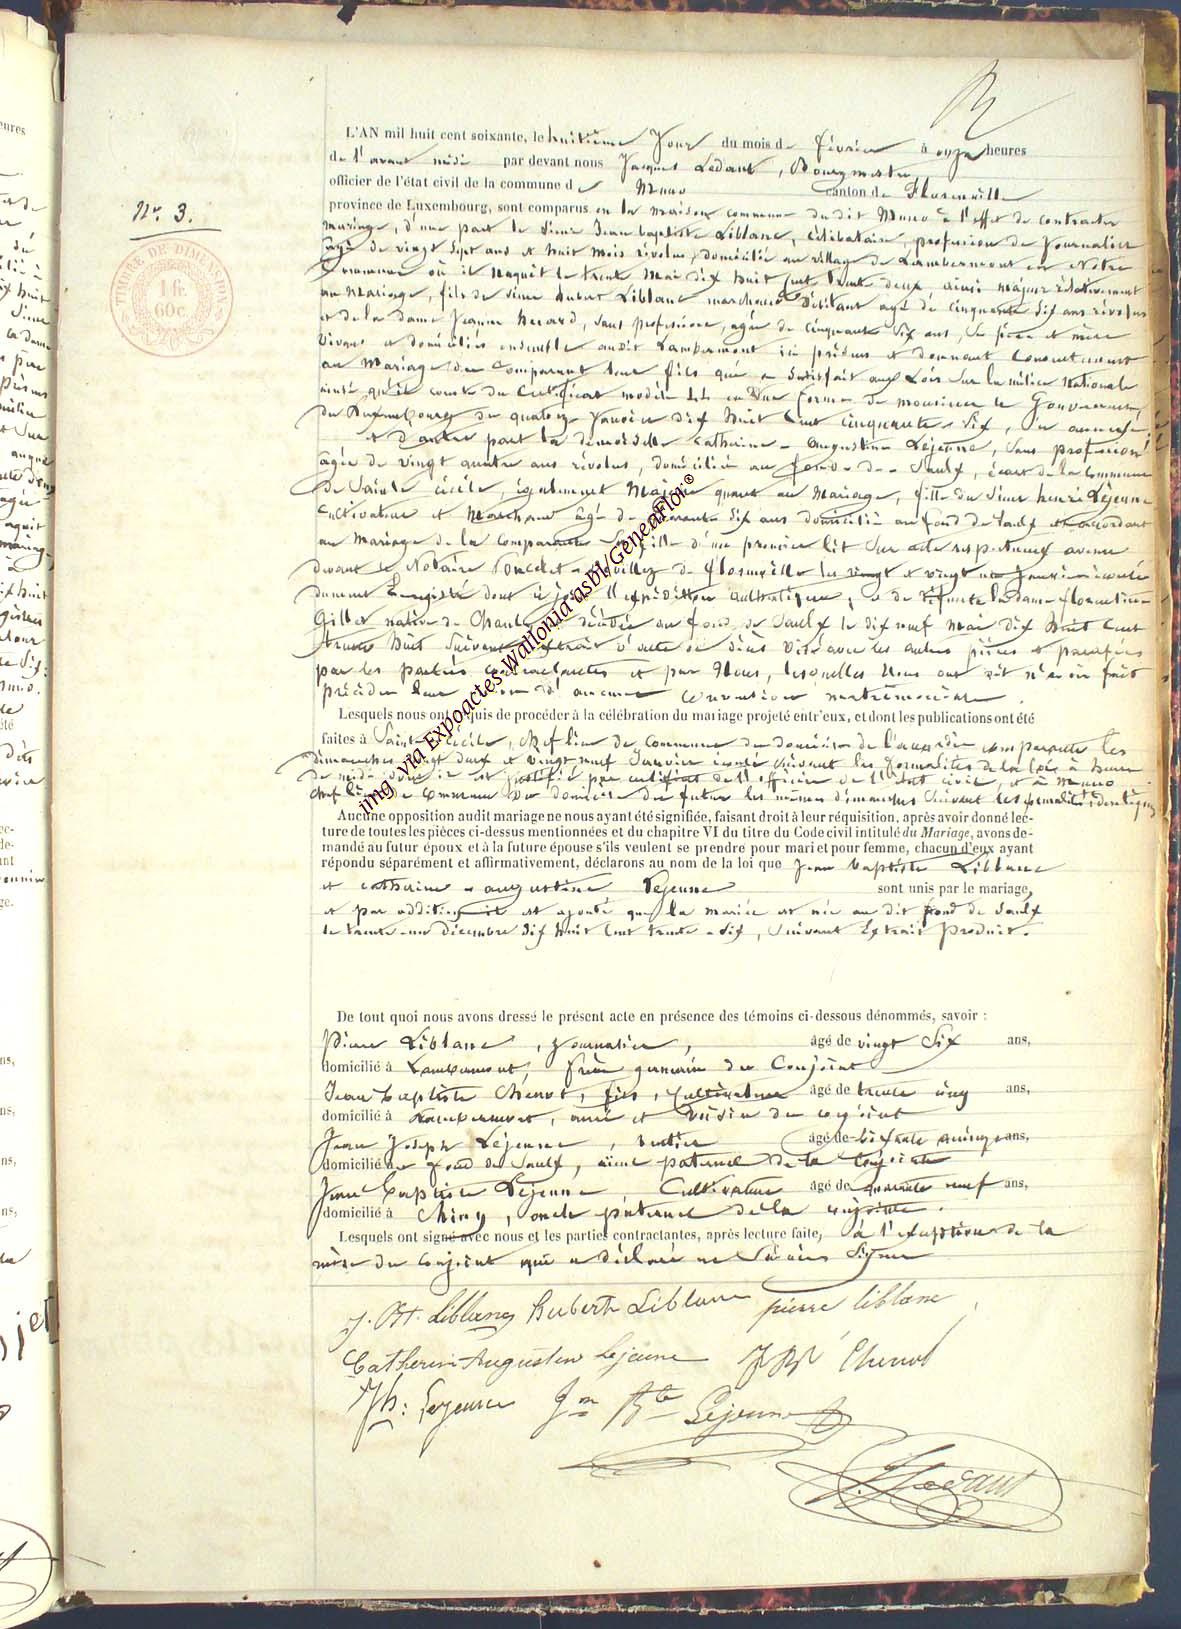 N.° 3.
TIMBRE DE DIMENSION
1 fr.
60 c.
L'AN mil huit cent soixante, le huitième jour du mois de février à onze heures
de l'avant midi par devant nous Jacques Ledant, Bourgmestre,
officier de l'état civil de la commune de Muno canton de Florenville
province de Luxembourg, sont comparus en la maison commune du dit Muno à l'effet de contracter
mariage, d'une part le sieur Jean baptiste Liblanc, célibataire, profession de journalier
âgé de vingt sept ans et huit mois révolus, domicilié au village de Lambermont en notre
Commune où il naquit le trente Mai dix huit cent trente deux, ainsi majeur relativement
au mariage, fils de sieur hubert Liblanc marchand détaillant agé de cinquante dix ans révolus
et de la dame Jeanne herard, sans profession, agée de cinquante six ans, ses père et mère
vivans et domiciliés ensemble audit Lambermont ici présens et donnant consentement
au mariage du comparant leur fils qui a satisfait aux Lois sur la milice Nationale
ainsi qu'il conste du certificat modèle en due forme de monsieur le Gouverneur
du Luxembourg du quatorze Janvier dix huit cent cinquante-six, ici annexé
et d'autre part la demoiselle catherine-augustine Lejeune, sans profession
âgée de vingt quatre ans révolus, domiciliée au fond-de-Saulx, écart de la Commune
de Sainte cécile, également Majeure quant au mariage, fille du sieur henri Lejeune
cultivateur et marchand âgé de dix ans domicilié au fond de Saulx et accordant
au mariage de la comparante sa fille d'un premier lit sur acte respectueux avenu
devant le Notaire de florenville les vingt et vingt un Janvier écoulé
dument Enregistré dont ci joint l'expédition authentique, et de défunte la dame florentine
Gillet native de décédée au fond de Saulx le dix neuf mai dix huit cent
trente huit suivant extrait d'acte de décès visé avec les autres pièces et paraphées
par les parties contractantes et par Nous, lesquelles Nous ont dit n'avoir fait
précéder leur union d'aucune convention matrimoniale.
Lesquels nous ont requis de procéder à la célébration du mariage projeté entr'eux, et dont les publications ont été
faites à Sainte Cécile, chef lieu de commune du domicile de la comparante les
dimanches vingt deux et vingt neuf Janvier écoulé suivant les formalités de la loi à heure
de midi et justifié par certificat de l'officier de l'état civil, et à Muno
chef lieu de Commune du domicile du futur les mêmes dimanches suivant les formalités
Aucune opposition audit mariage ne nous ayant été signifiée, faisant droit à leur réquisition, après avoir donné lec-
ture de toutes les pièces ci-dessus mentionnées et du chapitre VI du titre du Code civil intitulé du Mariage, avons de-
mandé au futur époux et à la future épouse s'ils veulent se prendre pour mari et pour femme, chacun d'eux ayant
répondu séparément et affirmativement, déclarons au nom de la loi que Jean baptiste Liblanc
et catherine-augustine Lejeune sont unis par le mariage,
et par addition il est ajouté que la mariée est née au dit fond de Saulx
le trente-un décembre dix huit cent trente-six, suivant Extrait produit.
De tout quoi nous avons dressé le présent acte en présence des témoins ci-dessous dénommés, savoir :
Pierre Liblanc, journalier, âgé de vingt six ans,
domicilié à Lambermont, frère germain du Conjoint
Jean baptiste Chenot, fils, cultivateur âgé de trente cinq ans,
domicilié à Lambermont, ami et voisin du conjoint
Jean Joseph Lejeune, rentier âgé de soixante quinze ans,
domicilié au fond de Saulx, aïeul paternel de la Conjointe
Jean baptiste Lejeune, Cultivateur âgé de quarante neuf ans,
domicilié à Chiny, oncle paternel de la conjointe.
Lesquels ont signé avec nous et les parties contractantes, après lecture faite, à l'exception de la
mère du conjoint qui a déclaré ne savoir signer
J. Bt. Liblanc hubert Liblanc pierre liblanc
Catherin Augustin Lejeune J Bt Chenot
Jh: Lejeune Jn Bte Lejeune
J. Ledant
img via Expoactes-Wallonia asbl/GeneaFlor®